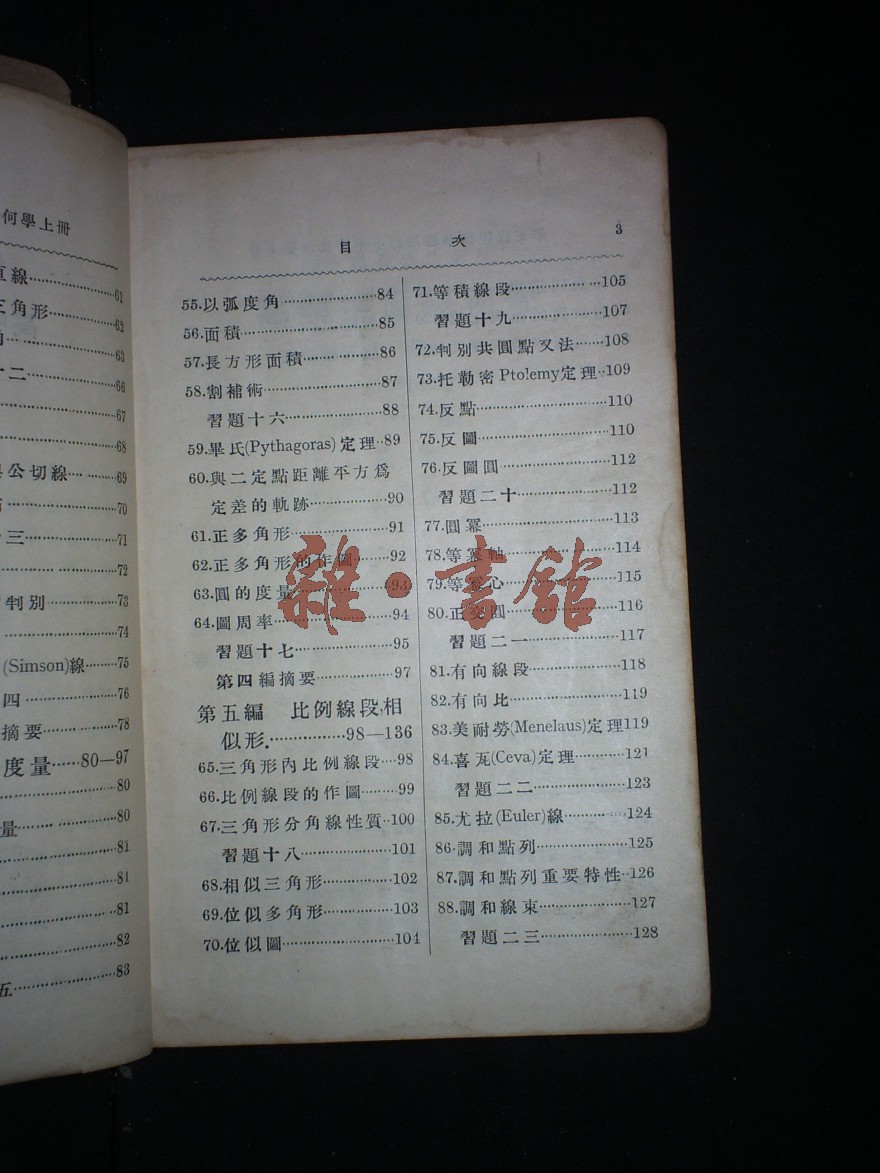 何學上冊
線……61
三角形……62
……63
十二……66
……67
……68
公切線……69
……70
十三……71
……72
判别……73
……74
(Simson)線……75
四……76
摘要……78
度量……80—97
……80
量……80
……81
……81
……81
……82
五……83
目 次 3
55.以弧度角……84
56.面積……85
57.長方形面積……86
58.割補術……87
習題十六……88
59.畢氏(Pythagoras)定理··89
60.與二定點距離平方爲
定差的軌跡……90
61.正多角形……91
62.正多角形的作圖……92
63.圓的度量……93
64.圖周率……94
習題十七……95
第四編摘要……97
第五編 比例線段,相
似形.……98—136
65.三角形內比例線段……98
66.比例線段的作圖……99
67.三角形分角線性質··100
習題十八……101
68.相似三角形……102
69.位似多角形……103
70.位似圖……104
71.等積線段……105
習題十九……107
72.判别共圓點又法……108
73.托勒密Ptolemy定理··109
74.反點……110
75.反圖……110
76.反圖圓……112
習題二十……112
77.圓冪……113
78.等冪軸……114
79.等冪心……115
80.正交圓……116
習題二一……117
81.有向線段……118
82.有向比……119
83.美耐勞(Menelaus)定理119
84.喜瓦(Ceva)定理……121
習題二二……123
85.尤拉(Euler)線……124
86.調和點列……125
87.調和點列重要特性··126
88.調和線束……127
習題二三……128
雜·書館